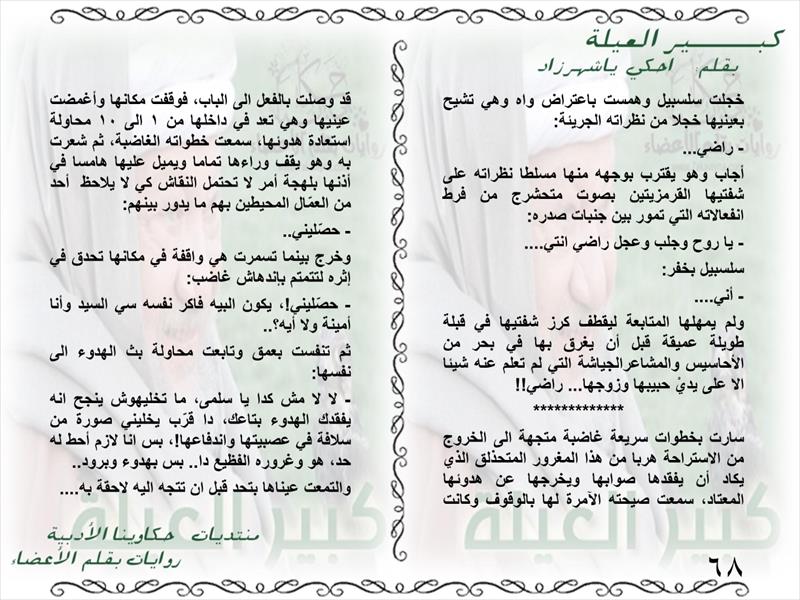 كبـــــــير العيلة
بقلم: احكي ياشهرزاد
خجلت سلسبيل وهمست باعتراض واه وهي تشيح
بعينيها خجلا من نظراته الجريئة:
- راضي...
أجاب وهو يقترب بوجهه منها مسلطا نظراته على
شفتيها القرمزيتين بصوت متحشرج من فرط
انفعالاته التي تمور بين جنبات صدره:
- يا روح وجلب وعجل راضي انتي....
سلسبيل بخفر:
- أني....
ولم يمهلها المتابعة ليقطف كرز شفتيها في قبلة
طويلة عميقة قبل أن يغرق بها في بحر من
الأحاسيس والمشاعرالجياشة التي لم تعلم عنه شيئا
الا على يديّ حبيبها وزوجها... راضي!!
*************
سارت بخطوات سريعة غاضبة متجهة الى الخروج
من الاستراحة هربا من هذا المغرور المتحذلق الذي
يكاد أن يفقدها صوابها ويخرجها عن هدوئها
المعتاد، سمعت صيحته الآمرة لها بالوقوف وكانت
قد وصلت بالفعل الى الباب، فوقفت مكانها وأغمضت
عينيها وهي تعد في داخلها من ١ الى ١٠ محاولة
استعادة هدوئها، سمعت خطواته الغاضبة، ثم شعرت
به وهو يقف وراءها تماما ويميل عليها هامسا في
أذنها بلهجة أمر لا تحتمل النقاش كي لا يلاحظ أحد
من العمّال المحيطين بهم ما يدور بينهم:
- حصّليني..
وخرج بينما تسمرت هي واقفة في مكانها تحدق في
إثره لتتمتم بإندهاش غاضب:
- حصّليني!، يكون البيه فاكر نفسه سي السيد وأنا
أمينة ولا أيه؟..
ثم تنفست بعمق وتابعت محاولة بث الهدوء الى
نفسها:
- لا لا مش كدا يا سلمى، ما تخليهوش ينجح انه
يفقدك الهدوء بتاعك، دا قرّب يخليني صورة من
سلافة في عصبيتها واندفاعها!، بس انا لازم أحط له
حد، هو وغروره الفظيع دا.. بس بهدوء وبرود..
والتمعت عيناها بتحد قبل ان تتجه اليه لاحقة به....
كبير العيلة
كبير العيلة
منتديات حكاوينا الأدبية
روايات بقلم الأعضاء
٦٨